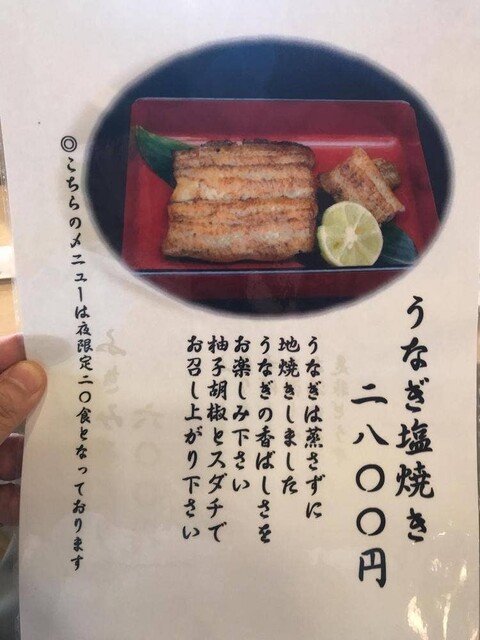 うなぎ塩焼き
二八〇〇円
うなぎは蒸さずに
地焼きしました
うなぎの香ばしさを
お楽しみ下さい
柚子胡椒とスダチで
お召し上がり下さい
◎こちらのメニューは夜限定二〇食となっております